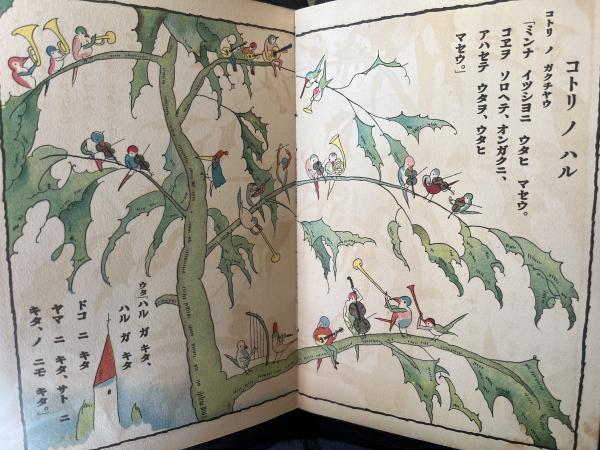 コトリ ノ ハル
コトリ ノ ガクチヤウ
「ミンナ イツシヨニ ウタヒ マセウ。
コヱヲ ソロヘテ、オンガクニ、
アハセテ ウタヲ、ウタヒ
マセウ。」
ウタ「ハル ガ キタ、
ハル ガ キタ
ドコ ニ キタ
ヤマ ニ キタ、サト ニ
キタ、ノ ニモ キタ。」